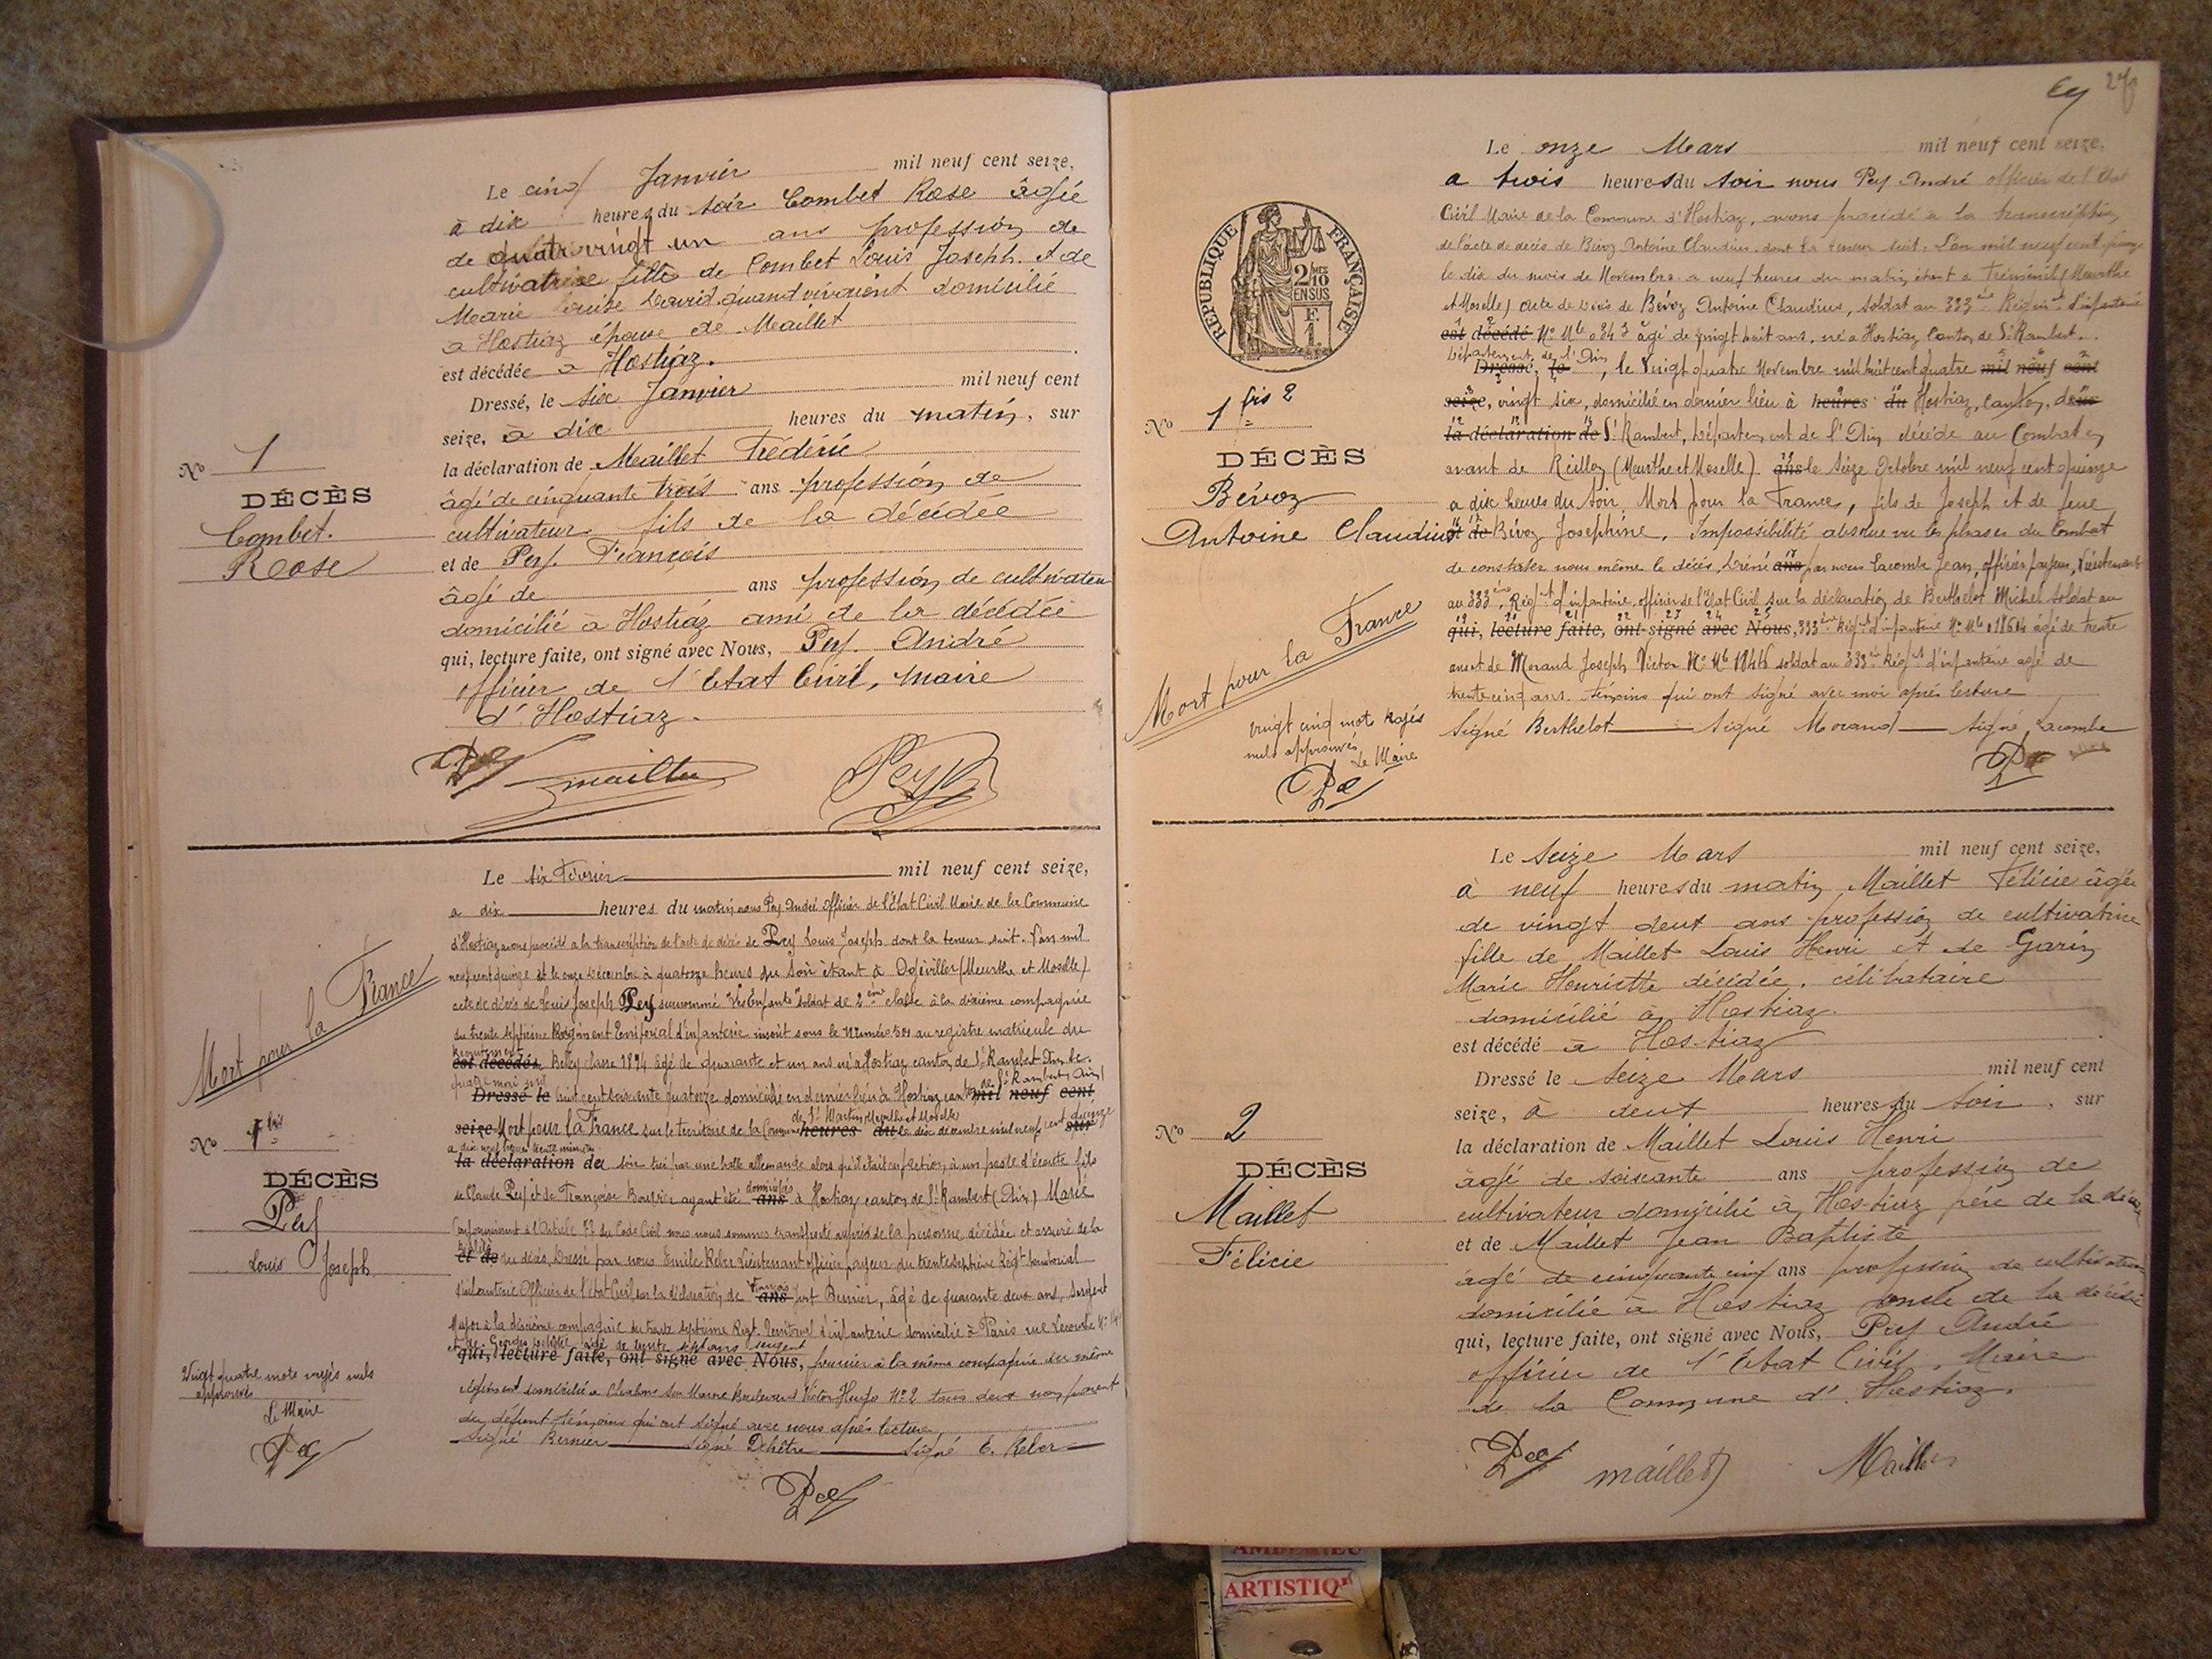 Le cinq Janvier mil neuf cent seize,
à dix heures du soir Combet Rose âgée
de quatre vingt un ans profession de
cultivatrice fille de Combet Louis Joseph et de
Marie Louise David quand vivaient domicilié
a Hostiaz épouse de Maillet
est décédée a Hostiaz.
Dressé, le six Janvier mil neuf cent
seize, à dix heures du matin, sur
la déclaration de Maillet Frédéric
âgé de cinquante trois ans profession de
cultivateur fils de la décédée
et de Pey. François
âgé de ans profession de cultivateur
domicilié à Hostiaz ami de la décédée
qui, lecture faite, ont signé avec Nous, Pey. André
officier de l'Etat Civil, maire
d'Hostiaz.
No 1
DÉCÈS
Combet.
Rose
Pey maillet Pey
Le six Février mil neuf cent seize,
a dix heures du matin nous Pey André officier de l'Etat Civil Maire de la Commune
d'Hostiaz avons procédé a la transcription de l'acte de décès de Pey Louis Joseph dont la teneur suit. l'an mil
neuf cent quinze et le onze Décembre à quatorze heures du soir étant à Ogéviller (Meurthe et Moselle)
acte de décès de Louis Joseph Pey surnommé "Des Enfants" soldat de 2ème classe à la dixième compagnie
du trente septième Régiment Territorial d'infanterie inscrit sous le numéro 501 au registre matricule du
recrutement
est décédée Belley classe 1894 âgé de quarante et un ans né a Hostiaz canton de St Rambert Ain le
quatre mai mil de St Rambert (Ain)
Dressé le huit cent soixante quatorze domicilié en dernier lieu à Hostiaz canton mil neuf cent
de St Martin, Meurthe et Moselle
seize Mort pour la France sur le territoire de la Commune heures du le dix décembre mil neuf cent quinze sur
a dix neuf heures trente minutes
la déclaration de du soir tué par une balle allemande alors qu'il était en faction à un poste d'écoute fils
de Claude Pey et de Françoise Bouvier ayant été domiciliés ans à Hostiaz canton de St Rambert (Ain) Marié
Conformément à l'Article 77 du Code Civil nous nous sommes transporté auprès de la personne décédée et assuré de la
réalité
et de du décès Dressé par nous Emile Reber Lieutenant officier payeur du trente septième Régt territorial
d'infanterie Officier de l'Etat Civil sur la déclaration de François ans Bernier, âgé de quarante deux ans, Sergent
Major à la dixième compagnie du trente septième Régt. Territorial d'infanterie domicilié à Paris rue Lecourbe
et de Georges Dehêtre âgé de trente sept ans sergent
qui, lecture faite, ont signé avec Nous, fourrier à la même compagnie du même
régiment domicilié a Chalons sur Marne Boulevard Victor Hugo No 2 tous deux non parent
du défunt témoins qui ont signé avec nous après lecture
Signé Bernier Signé Dehêtre Signé E. Reber
Pey
Mort pour la France
No 1 bis
DÉCÈS
Pey
Louis Joseph
Vingt quatre mots rayés nuls
approuvés
Le Maire
Pey
Le onze Mars mil neuf cent seize,
a trois heures du soir nous Pey André officier de l'Etat
Civil Maire de la Commune d'Hostiaz, avons procédé à la transcription
de l'acte de décès de Bévoz Antoine Claudius dont la teneur suit: L'an mil neuf cent quinze
le dix du mois de Novembre a neuf heures du matin étant a Tréménil (Meurthe
et Moselle) acte de décès de Bévoz Antoine Claudius, soldat au 333ème Régiment d'infanterie
est décédé No Mle 0343 âgé de vingt huit ans, né a Hostiaz Canton de St Rambert.
Département de l'Ain
Dressé, le, le Vingt quatre Novembre mil huit cent quatre mil neuf cent
seize, vingt six, domicilié en dernier lieu à heures du Hostiaz, canton, de sur
la déclaration de St Rambert, Département de l'Ain décédé au Combat en
avant de Reillon (Meurthe et Moselle) ans le seize Octobre mil neuf cent quinze
a dix heures du soir, Mort pour la France, fils de Joseph et de feue
et de Bévoz Josephine. Impossibilité absolue vu les phases du Combat
de constater nous même le décès, Dréssé ans par nous Lacombe Jean, officier payeur, Lieutenant
au 333ème Régt d'infanterie, officier de l'Etat Civil sur la déclaration de Berthelot Michel soldat au
qui, lecture faite, ont signé avec Nous, 333ème Régt d'infanterie No Mle 018614 âgé de trente
ans et de Morand Joseph Victor No Mle 18416 soldat au 333e Régt d'infanterie agé de
trente cinq ans. témoins qui ont signé avec moi après lecture
Signé Berthelot Signé Morand Signé Lacombe
Pey
RÉPUBLIQUE FRANÇAISE
2/10 EN SUS
No 1 bis 2
DÉCÈS
Bévoz
Antoine Claudius
Mort pour la France
Vingt cinq mots rayés
nuls approuvés
Le Maire
Pey
Le seize Mars mil neuf cent seize,
à neuf heures du matin Maillet Félicie âgée
de vingt deux ans profession de cultivatrice
fille de Maillet Louis Henri et de Garin
Marie Henriette décédée, célibataire
domicilié à Hostiaz.
est décédé à Hostiaz
Dressé le seize Mars mil neuf cent
seize, à deux heures du soir, sur
la déclaration de Maillet Louis Henri
âgé de soixante ans profession de
cultivateur domicilié à Hostiaz père de la décédée
et de Maillet Jean Baptiste
âgé de cinquante cinq ans profession de cultivateur
domicilié à Hostiaz oncle de la décédée
qui, lecture faite, ont signé avec Nous, Pey André
officier de l'Etat Civil, Maire
de la Commune d'Hostiaz.
Pey maillet Maillet
No 2
DÉCÈS
Maillet
Félicie
ARTISTIQ